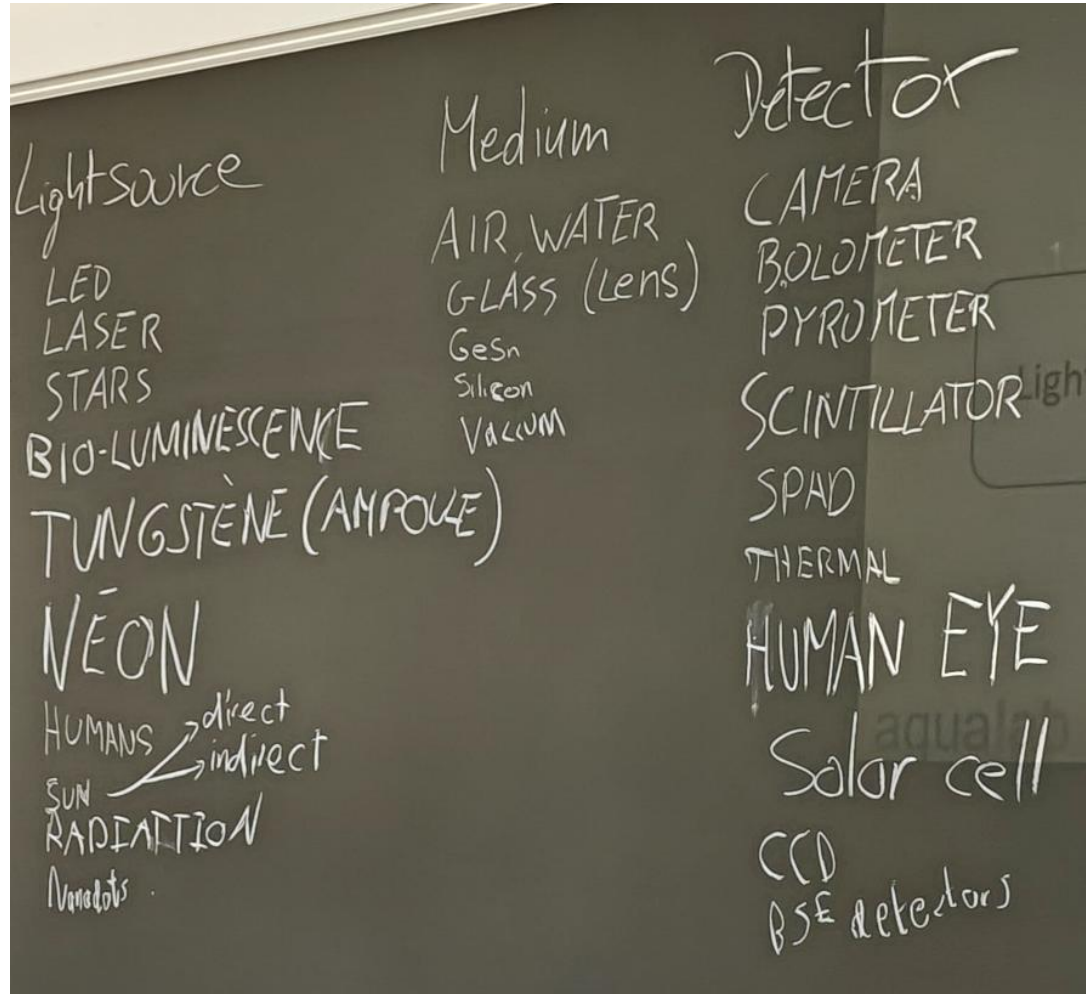 Lightsource
LED
LASER
STARS
BIO-LUMINESCENCE
TUNGSTÈNE (AMPOULE)
NÉON
HUMANS
direct
indirect
SUN
RADIATTION
Nanodots
Medium
AIR, WATER
GLASS (Lens)
GeSn
Silicon
Vaccum
Detector
CAMERA
BOLOMETER
PYROMETER
SCINTILLATOR
SPAD
THERMAL
HUMAN EYE
Solar cell
CCD
BSE detectors
1
Light
aqualab